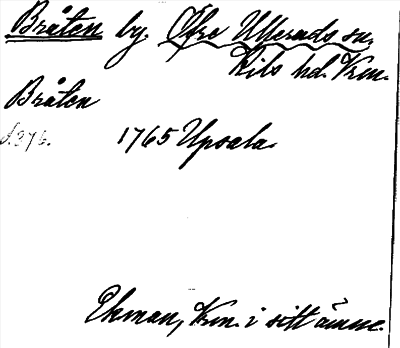 Bråten by. Öfre Ulleruds sn.
Kils hd. Vrm.
Bråten
s. 376. 1765 Upsala.
Ekman, Vrm. i sitt ämne.